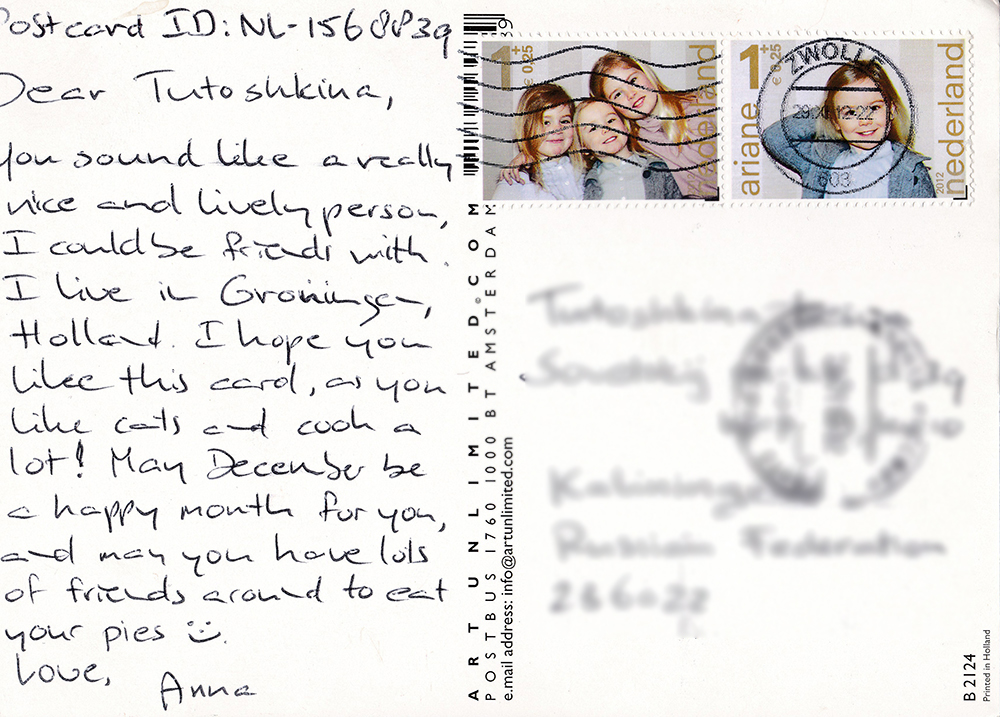 Postcard ID: NL-1568839
Dear Tutoshkina,
you sound like a really
nice and lively person,
I could be friends with.
I live in Groningen,
Holland. I hope you
like this card, as you
like cats and cook a
lot! May December be
a happy month for you,
and may you have lots
of friends around to eat
your pies
Love,
Anna
ART UNLIMITED©COM
POSTBUS 1760 1000 BT AMSTERDAM
e.mail address: info@artunlimited.com
39
1+
€ 0,25
nederland
ariane
1+
€ 0,25
2012
nederland
ZWOLLE
603
Tutoshkina
Russian Federation
B 2124
Printed in Holland